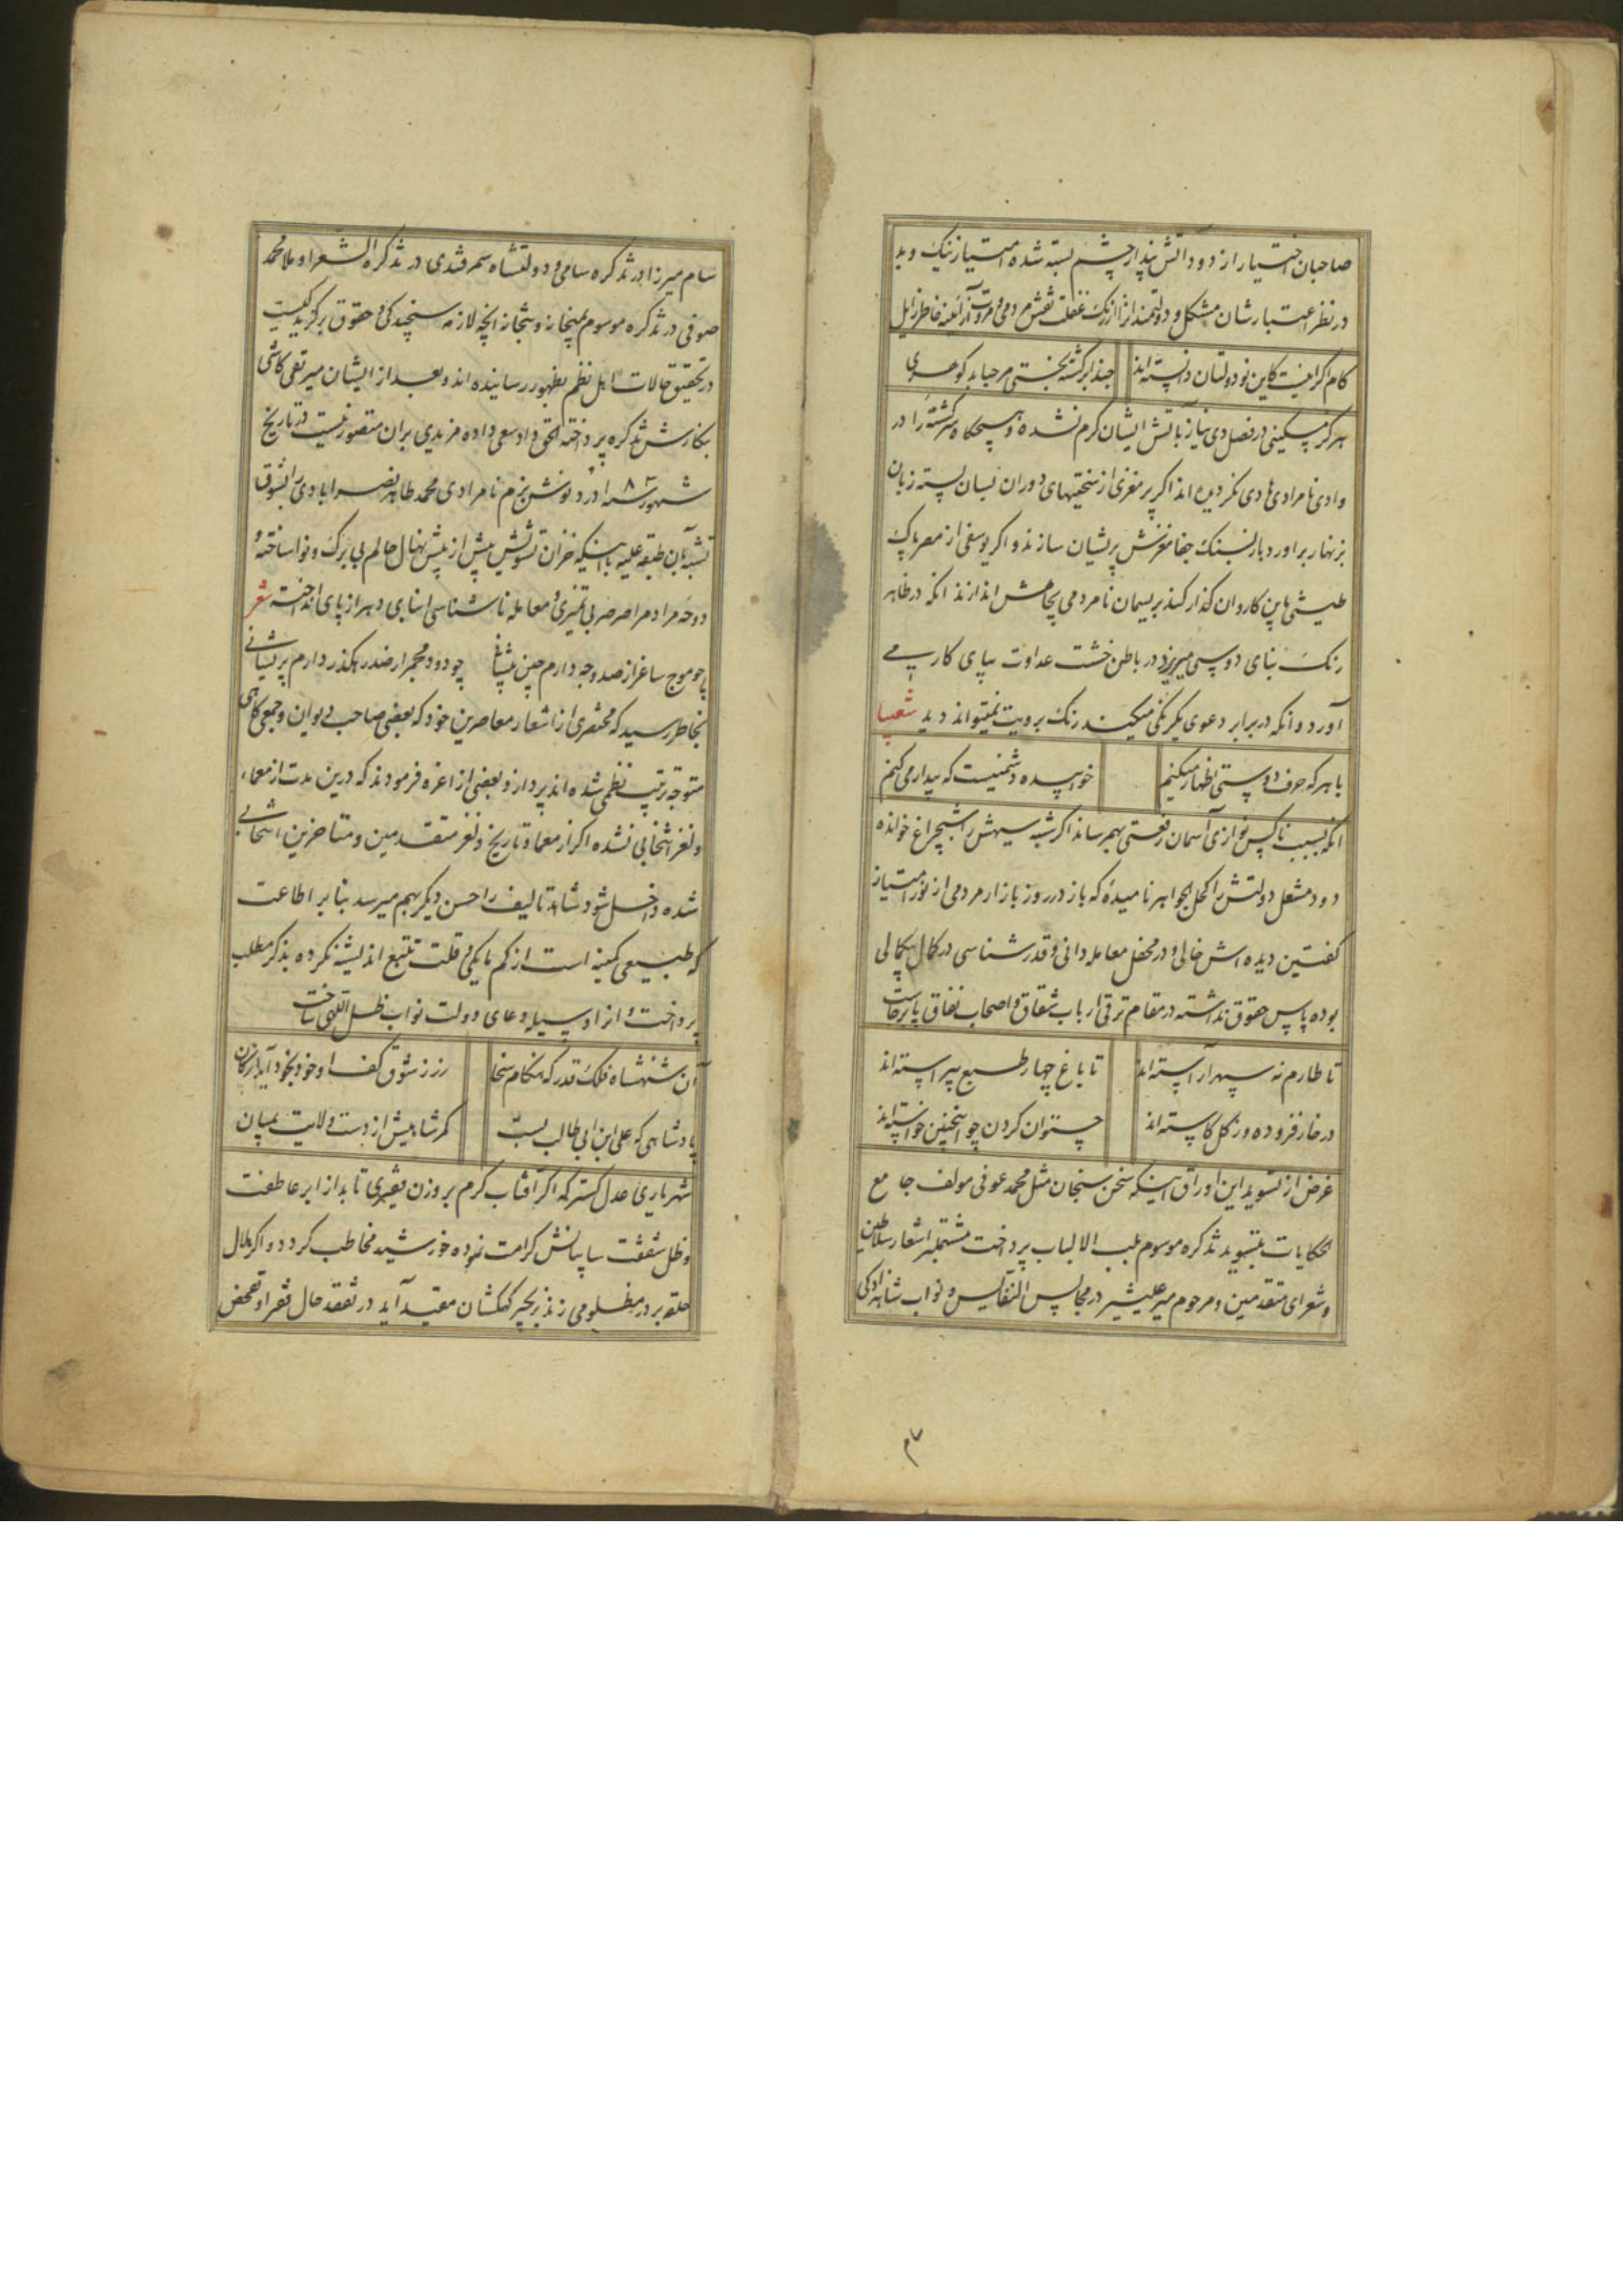 صاحبان اختیار از دود آتش پندار چشم بسته شده امتیاز نیک و بد
در نظر اعتبارشان مشکل و دولتمندانرا از زنک غفلت نقش مردمی و مروت از آئینه خاطر زایل
کام اگر اینست کاین نو دولتان دانسته اند
حبذا برکشته بختی مرحبا بد کوهری
هرکز مسکینی در فصل دی نیاز بآتش ایشان کرم نشده و هیچکاه سرکشته را در
وادی نامرادی هادی نکردیده اند اکر پر مغزی از سختیهای دوران لسان پسته زبان
بزنهار براورد بار بسنک جفا مغزش پریشان سازند و اکر یوسفی از مصر پاک
طینتی باین کاروان کذار کند بریسمان نامردمی بچاهش اندازند انکه در ظاهر
رنک بنای دوستی میریزد در باطن خشت عداوت بپای کار می
آورد و انکه در برابر دعوی یکرنکی میکند رنک برویت نمیتواند دید شعیبا
با هر که حرف دوستی اظهار میکنیم
خوابیده دشمنیست که بیدار می کنم
انکه بسبب ناکس نوازی آسمان رفعتی بهم رساند اکر شبه سیهش را شبچراغ خوانده
دود مشعل دولتش را کحل الجواهر نامیده که باز در روز بازار مردمی از نور امتیاز
کفتین دیده اش خالی و در محفل معامله دانی و قدر شناسی در کمال بیکمالی
بوده پاس حقوق نداشته در مقام ترقی ارباب شقاق و اصحاب نفاق پا برجاست
تا طارم نه سپهر آراسته اند
تا باغ چهار طبع پیراسته اند
در خار فزوده وز کل کاسته اند
چتوان کردن چو اینچنین خواسته اند
غرض از تسوید این اوراق اینکه سخن سنجان مثل محمد عوفی مولف جامع
الحکایات بتسوید تذکره موسوم بلب الالباب پرداخت مشتملبر اشعار سلاطین
و شعرای متقدمین و مرحوم میر علیشیر در مجالس النفایس و نواب شاهزادکی
سام میرزا در تذکره سامی و دولتشاه سمرقندی در تذکرة الشعرا و ملا محمد
صوفی در تذکره موسوم بمیخانه و بتخانه انچه لازمه سنجیدکی و حقوق برکزیدکیست
در تحقیق حالات اهل نظم بظهور رسانیده اند و بعد از ایشان میر تقی کاشی
بنکارش تذکره پرداخته الحق داد سعی داده مزیدی بران متصور نیست در تاریخ
شهور سنه ۱۰۸۳ درد نوش بزم نامرادی محمد طاهر نصرابادی را بشوق
تشبه بآن طبقه علیه با اینکه خزان تشویش بیش از پیش نهال حالم بی برک و نوا ساخته و
دوحه مراد مرا صرصر بی تمیزی و معامله ناشناسی ابنای دهر از پای انداخته شعر
چو موج ساغر از صد وجه دارم چین پیشانی
چو دود مجمر از صد رهکذر دارم پریشانی
بخاطر رسید که مختصری از اشعار معاصرین خود که بعضی صاحب دیوان و جمعی کاهی
متوجه ترتیب نظمی شده اند پردازد بعضی از اعزه فرمودند که درین مدت از معما
و لغز انتخابی نشده اکر از معما و تاریخ و لغز متقدمین و متاخرین انتخابی
شده داخل شود شاهد تالیف را حسن دیکر بهم میرسد بنا بر اطاعت
که طبیعی کمینه است از کم مایکی و قلت تتبع اندیشه نکرده بذکر مطلب
پرداخت و از او وسیله دعای دولت نواب ظل اللهی ساخت
آن شهنشاه فلک قدر که هنکام سخا
زر ز شوق کف او خود بخود آید از کان
پادشاهی که علی ابن ابی طالب بست
کمر شاهیش از دست ولایت بمیان
شهریاری عدل کستر که اکر آفتاب کرم بر وزن فقیری تابد از ابر عاطفت
و ظل شفقت سایبانش کرامت نموده خورشید مخاطب کردد و اکر هلال
حلقه بر در مظلومی زند بزنجیر کهکشان مقید آید در تفقد حال فقرا و تفحص